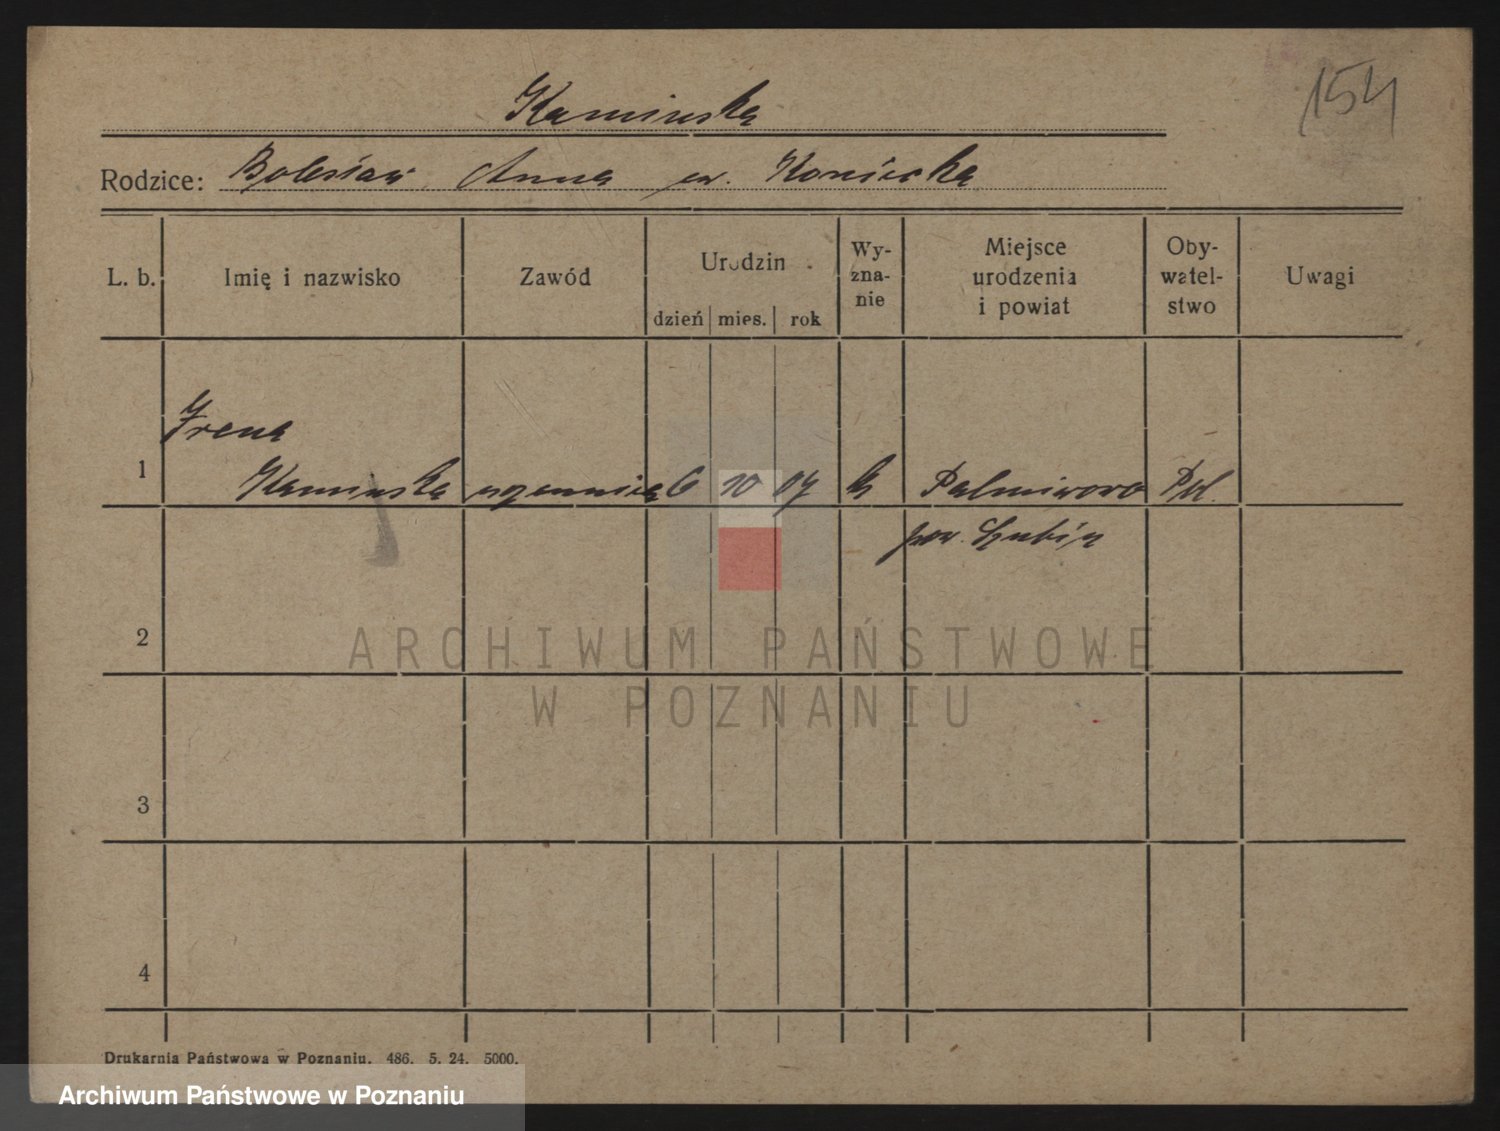 154
Kaminska
Rodzice: Bolesław Anna ur. Koniecka
L. b. Imię i nazwisko Zawód Urodzin Wy-zna-nie Miejsce urodzenia i powiat Oby-watel-stwo Uwagi
dzień mies. rok
Irena
1 Kaminska uczennica 6 10 07 k Palmierowo Pol.
pow. Szubin
2
ARCHIWUM PAŃSTWOWE
W POZNANIU
3
4
Drukarnia Państwowa w Poznaniu. 486. 5. 24. 5000.
Archiwum Państwowe w Poznaniu